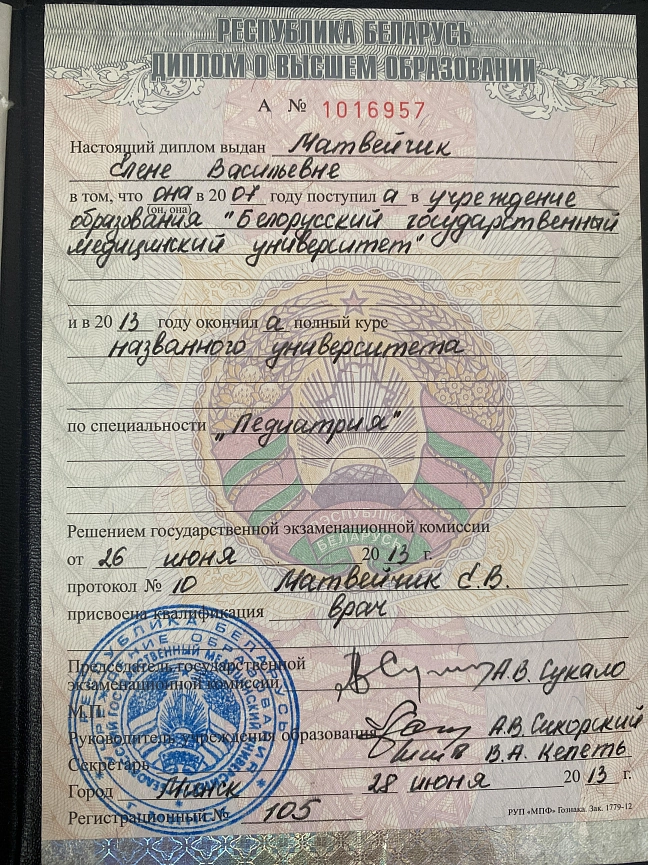 РЕСПУБЛИКА БЕЛАРУСЬ
ДИПЛОМ О ВЫСШЕМ ОБРАЗОВАНИИ
А № 1016957
Настоящий диплом выдан Матвейчик
Елене Васильевне
в том, что она в 2007 году поступила в учреждение
(он, она)
образования "Белорусский государственный
медицинский университет"
и в 2013 году окончила полный курс
названного университета
по специальности „Педиатрия"
РЕСПУБЛІКА
БЕЛАРУСЬ
Решением государственной экзаменационной комиссии
от 26 июня 2013 г.
протокол № 10 Матвейчик Е.В.
присвоена квалификация врач
Председатель государственной
экзаменационной комиссии А.В. Сукало
М.П.
Руководитель учреждения образования А.В. Сикорский
Секретарь В.А. Кепеть
Город Минск 28 июня 2013 г.
Регистрационный № 105
РУП «МПФ» Гознака. Зак. 1779-12